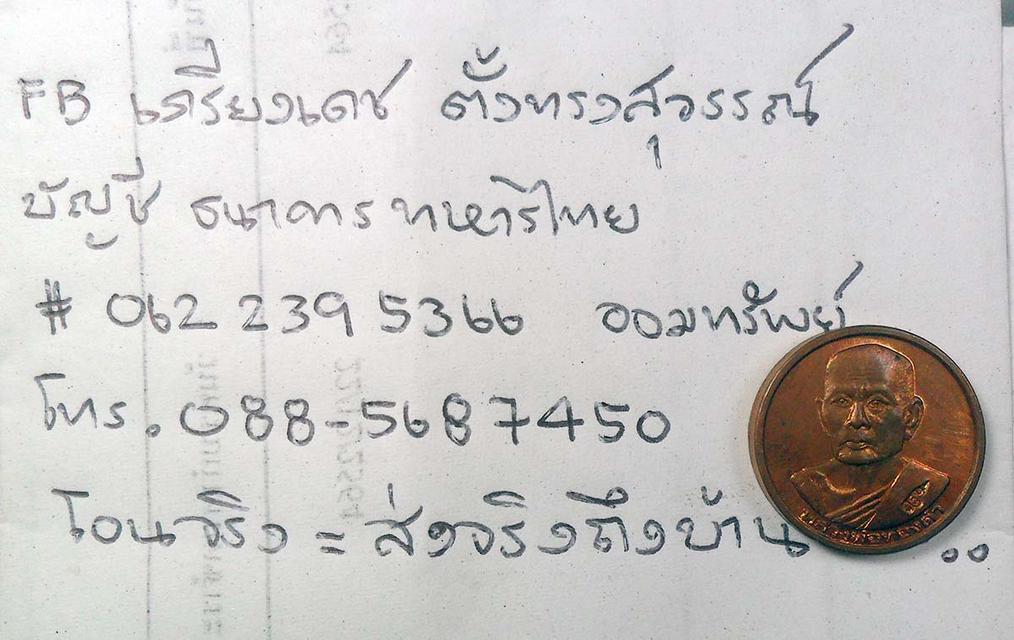 FB เกรียงเดช ตั้งทรงสุวรรณ์
บัญชี ธนาคาร ทหารไทย
# 062 239 5366 ออมทรัพย์
โทร. 088-5687450
โอนจริง = ส่งจริงถึงบ้าน